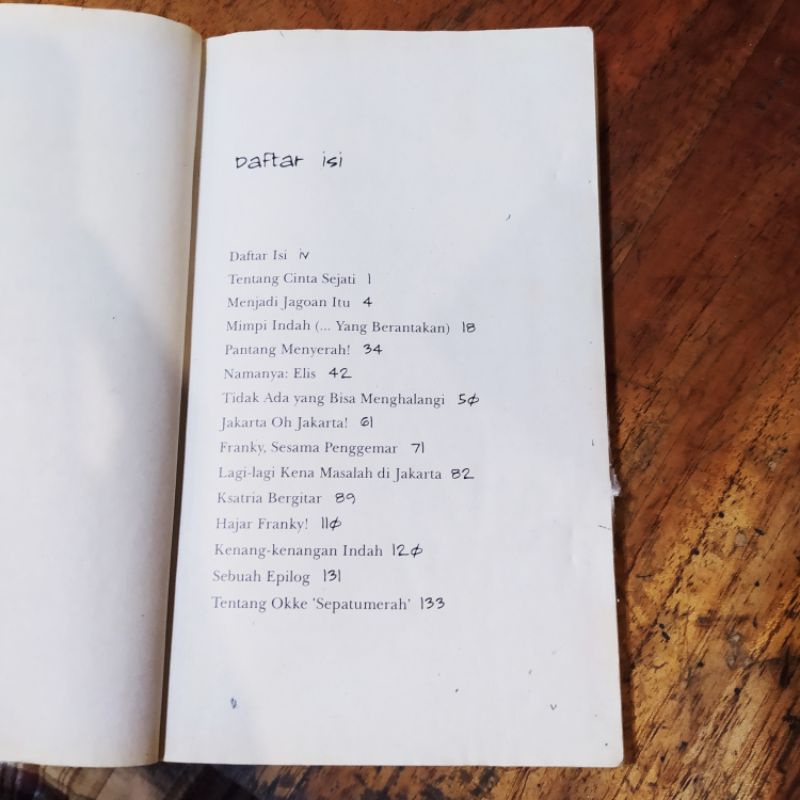 Daftar isi
Daftar Isi iv
Tentang Cinta Sejati 1
Menjadi Jagoan Itu 4
Mimpi Indah (... Yang Berantakan) 18
Pantang Menyerah! 34
Namanya: Elis 42
Tidak Ada yang Bisa Menghalangi 50
Jakarta Oh Jakarta! 61
Franky, Sesama Penggemar 71
Lagi-lagi Kena Masalah di Jakarta 82
Ksatria Bergitar 89
Hajar Franky! 110
Kenang-kenangan Indah 120
Sebuah Epilog 131
Tentang Okke 'Sepatumerah' 133
v